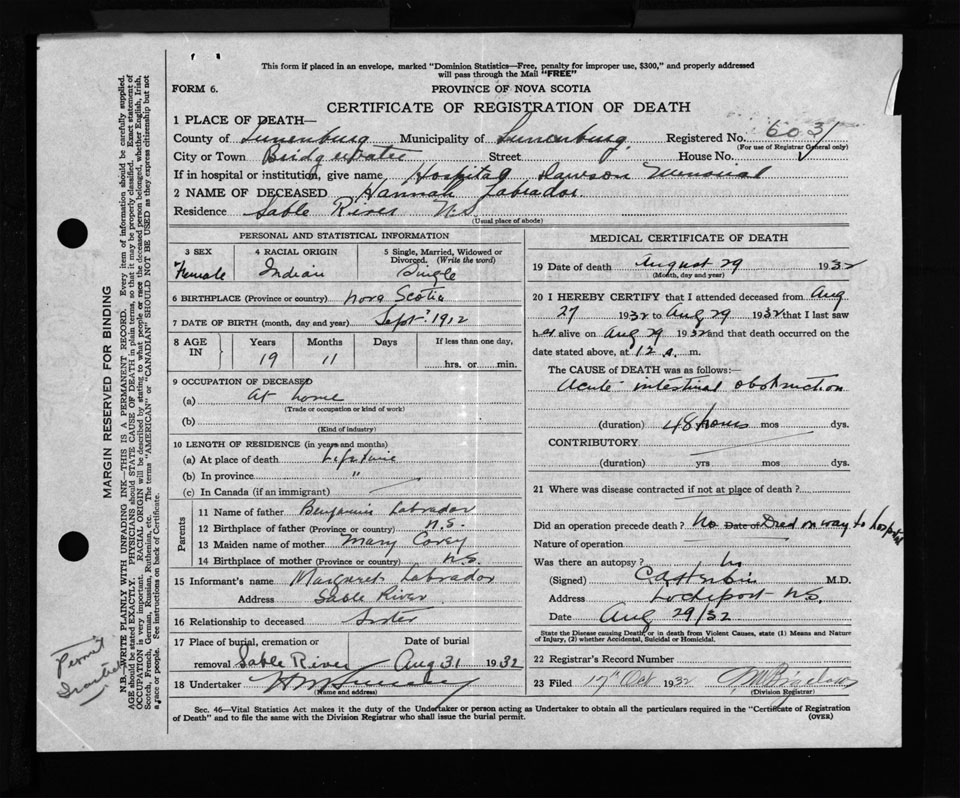 This form if placed in an envelope, marked "Dominion Statistics—Free, penalty for improper use, $300," and properly addressed
will pass through the Mail "FREE"
FORM 6. PROVINCE OF NOVA SCOTIA
CERTIFICATE OF REGISTRATION OF DEATH
1 PLACE OF DEATH—
County of Lunenburg Municipality of Lunenburg Registered No. 603
(For use of Registrar General only)
City or Town Bridgewater Street House No.
If in hospital or institution, give name Hospital Dawson Memorial
2 NAME OF DECEASED Hannah Labrador
Residence Sable River N.S.
(Usual place of abode)
PERSONAL AND STATISTICAL INFORMATION
3 SEX 4 RACIAL ORIGIN 5 Single, Married, Widowed or
Divorced. (Write the word)
Female Indian Single
6 BIRTHPLACE (Province or country) Nova Scotia
7 DATE OF BIRTH (month, day and year) Sept. 1912
8 AGE IN Years Months Days If less than one day,
19 11 hrs. or min.
9 OCCUPATION OF DECEASED
(a) At home
(Trade or occupation or kind of work)
(b)
(Kind of industry)
10 LENGTH OF RESIDENCE (in years and months)
(a) At place of death Life time
(b) In province "
(c) In Canada (if an immigrant)
Parents
11 Name of father Benjamin Labrador
12 Birthplace of father (Province or country) N.S.
13 Maiden name of mother Mary Covey
14 Birthplace of mother (Province or country) N.S.
15 Informant's name Margaret Labrador
Address Sable River
16 Relationship to deceased Sister
17 Place of burial, cremation or Date of burial
removal Sable River Aug 31 1932
18 Undertaker
(Name and address)
MEDICAL CERTIFICATE OF DEATH
19 Date of death August 29 1932
(Month, day and year)
20 I HEREBY CERTIFY that I attended deceased from Aug
27 1932 to Aug 29 1932 that I last saw
h er alive on Aug 29 1932 and that death occurred on the
date stated above, at 12 a. m.
The CAUSE of DEATH was as follows:—
Acute intestinal obstruction
(duration) 48 hours mos dys.
CONTRIBUTORY
(duration) yrs mos dys.
21 Where was disease contracted if not at place of death?
Did an operation precede death? No Date of Died on way to hospital
Nature of operation
Was there an autopsy? No
(Signed) M.D.
Address Lockeport N.S.
Date Aug 29/32
State the Disease causing Death, or in death from Violent Causes, state (1) Means and Nature
of Injury, (2) whether Accidental, Suicidal or Homicidal.
22 Registrar's Record Number
23 Filed 17th Oct 1932
(Division Registrar)
Sec. 46—Vital Statistics Act makes it the duty of the Undertaker or person acting as Undertaker to obtain all the particulars required in the "Certificate of Registration
of Death" and to file the same with the Division Registrar who shall issue the burial permit. (OVER)
MARGIN RESERVED FOR BINDING
N.B. WRITE PLAINLY WITH UNFADING INK—THIS IS A PERMANENT RECORD. Every item of information should be carefully supplied.
AGE should be stated EXACTLY. PHYSICIANS should STATE CAUSE OF DEATH in plain terms, so that it may be properly classified. Exact statement of
OCCUPATION is very important. RACIAL ORIGIN will be described by stating to what people or race the deceased person belonged, whether English, Irish,
Scotch, French, German, Russian, Ruthenian, etc. The terms "AMERICAN" or "CANADIAN" SHOULD NOT BE USED as they express citizenship but not
a race or people. See instructions on back of Certificate.
Permit